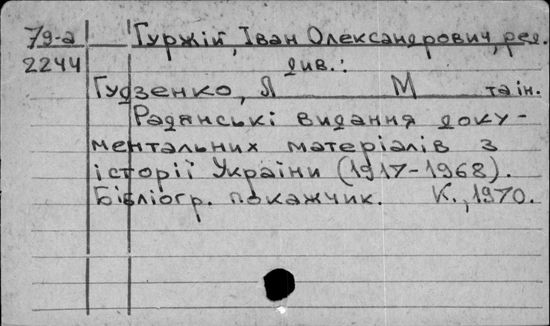 7д-а Гуржій, Іван Олександрович, ред.
2244 див.:
Гудзенко, Я М та ін.
Радянські видання доку-
ментальних матеріалів з
історії України (1917-1968).
Бібліогр. покажчик. К., 1970.